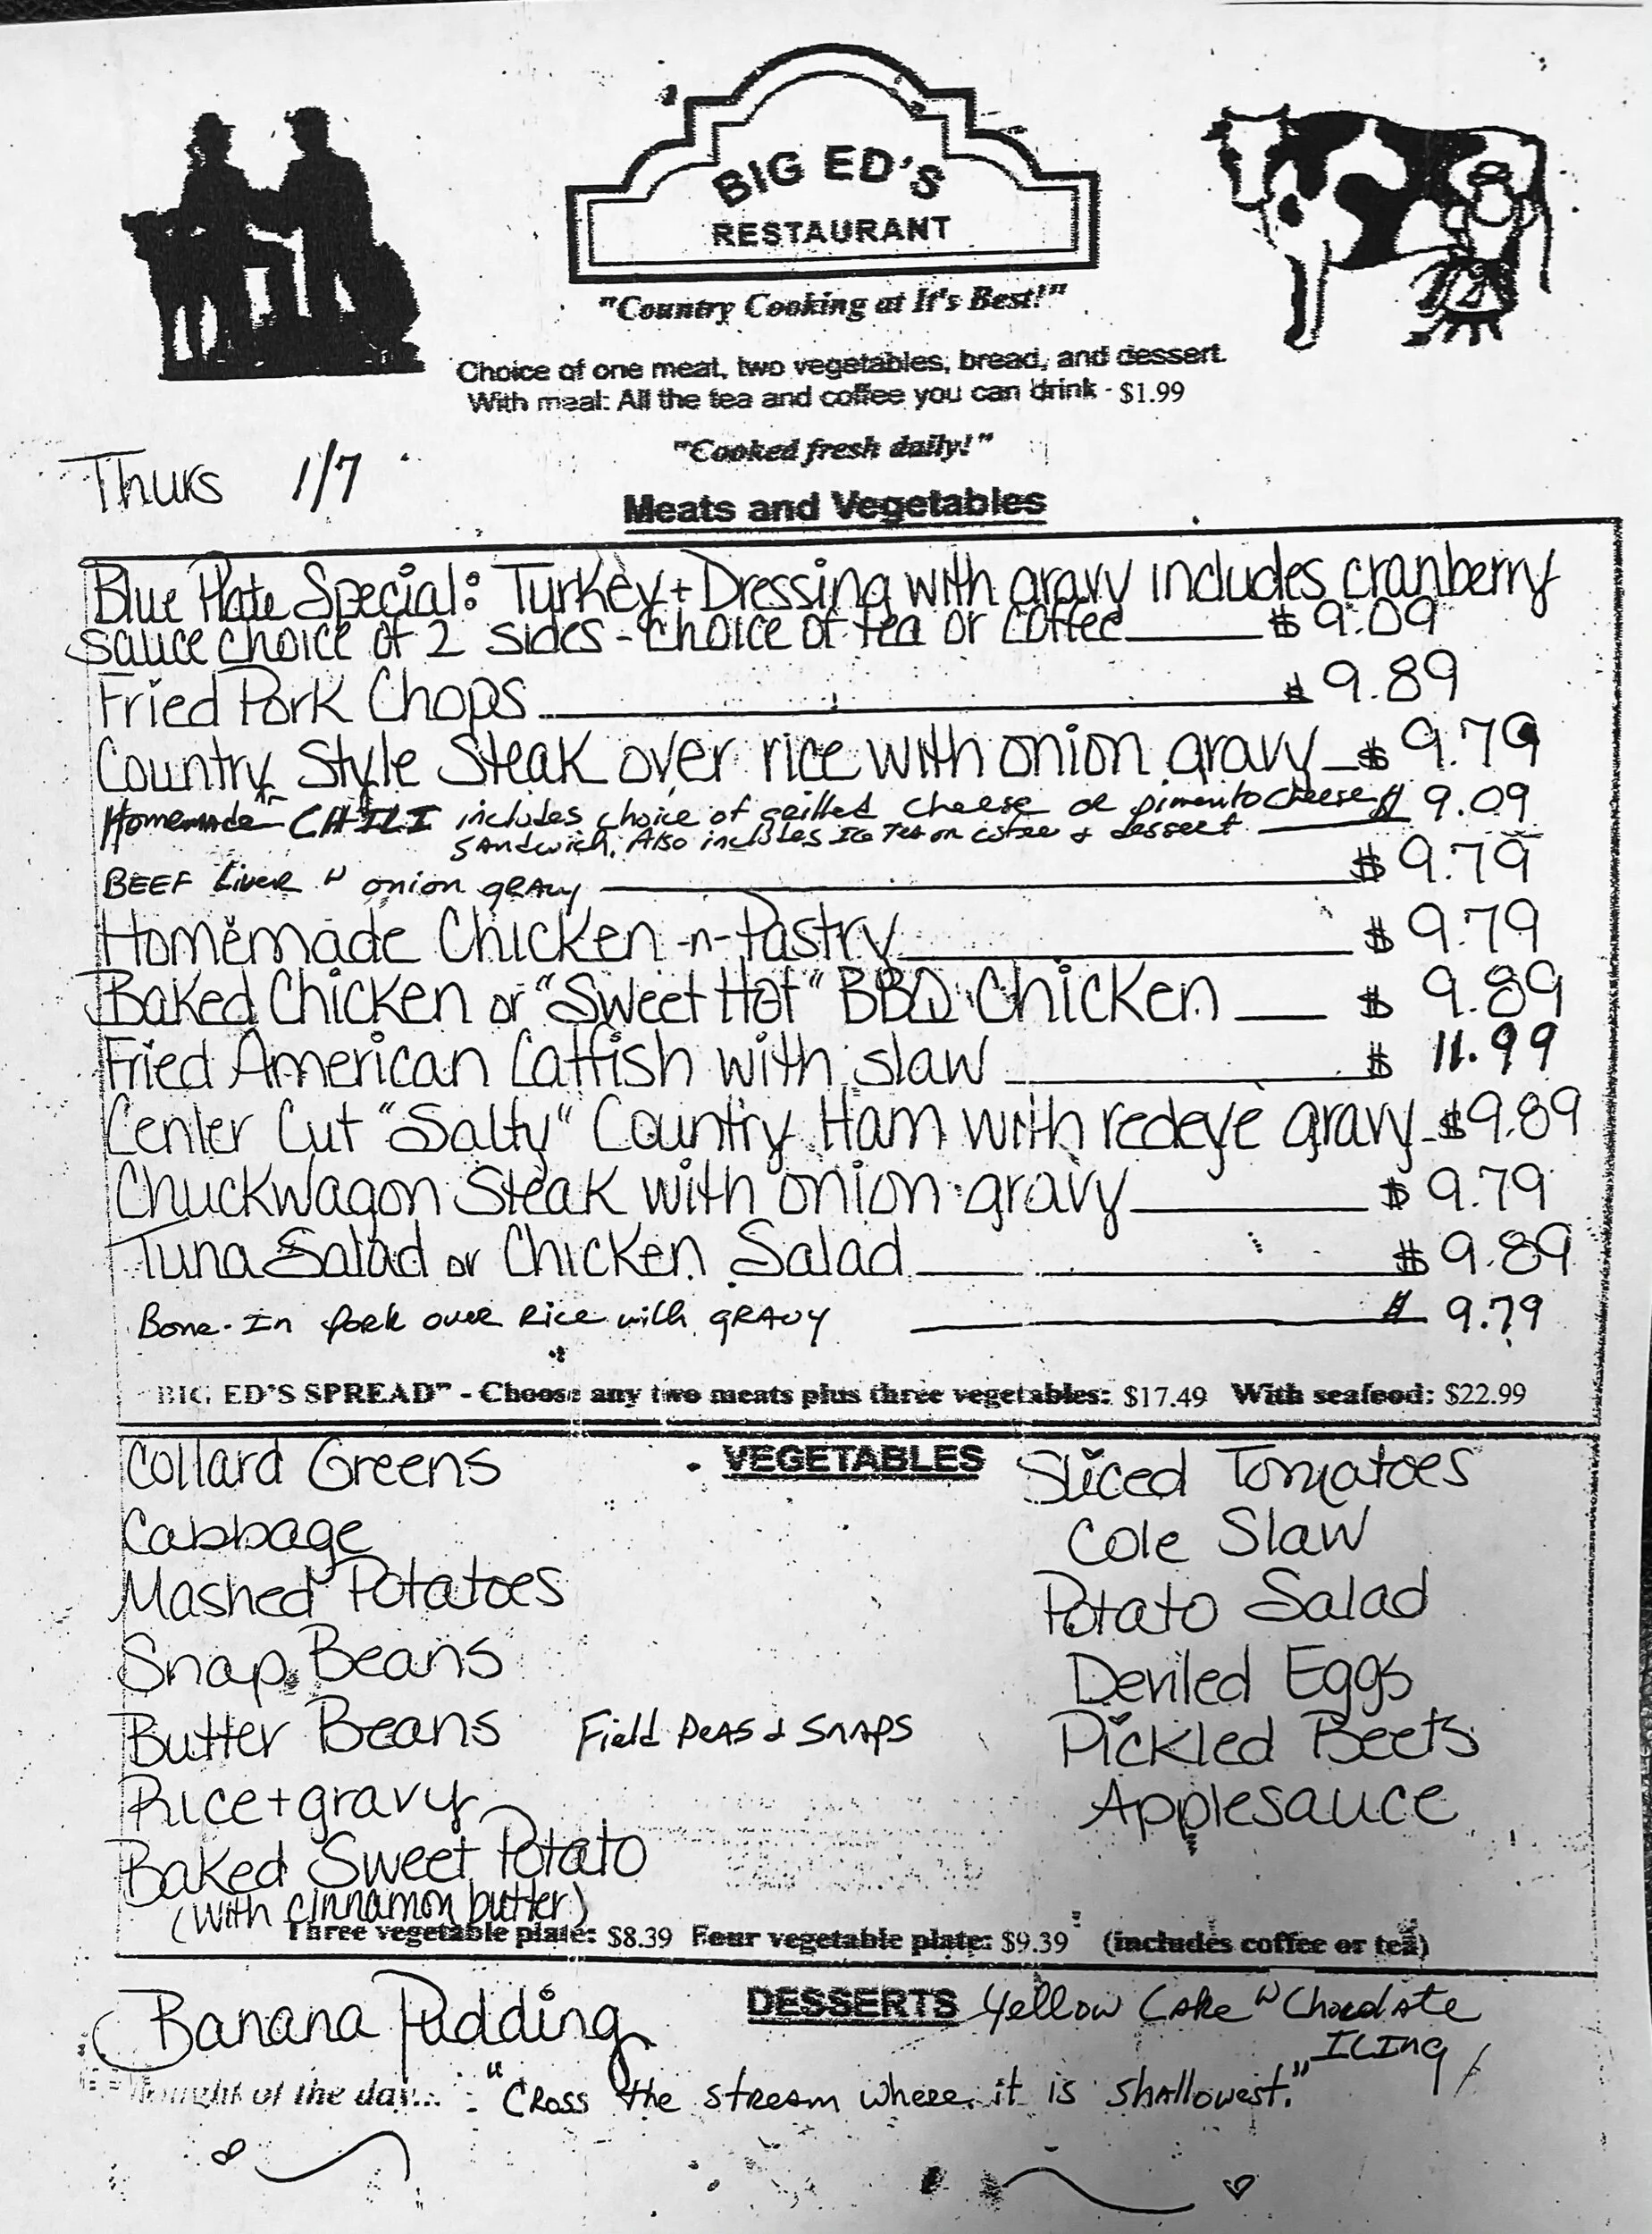 BIG ED'S
RESTAURANT
"Country Cooking at It's Best!"
Choice of one meat, two vegetables, bread, and dessert.
With meal: All the tea and coffee you can drink - $1.99
"Cooked fresh daily!"
Thurs 1/7
Meats and Vegetables
Blue Plate Special: Turkey + Dressing with gravy includes cranberry
sauce choice of 2 sides - choice of tea or coffee $9.09
Fried Pork Chops $9.89
Country Style Steak over rice with onion gravy $9.79
Homemade CHILI includes choice of grilled cheese or pimento cheese $9.09
Sandwich. Also includes Ice Tea or coffee & dessert
BEEF Liver w onion gravy $9.79
Homemade Chicken -n- Pastry $9.79
Baked Chicken or "Sweet Hot" BBQ Chicken $9.89
Fried American Catfish with slaw $11.99
Center Cut "Salty" Country Ham with redeye gravy $9.89
Chuckwagon Steak with onion gravy $9.79
Tuna Salad or Chicken Salad $9.89
Bone-In Pork over Rice with gravy $9.79
BIG ED'S SPREAD" - Choose any two meats plus three vegetables: $17.49 With seafood: $22.99
VEGETABLES
Collard Greens
Cabbage
Mashed Potatoes
Snap Beans
Butter Beans
Rice + gravy
Baked Sweet Potato
(with cinnamon butter)
Field Peas & Snaps
Sliced Tomatoes
Cole Slaw
Potato Salad
Deviled Eggs
Pickled Beets
Applesauce
Three vegetable plate: $8.39 Four vegetable plate: $9.39 (includes coffee or tea)
DESSERTS
Banana Pudding
Yellow Cake w Chocolate
Icing
Thought of the day... "Cross the stream where it is shallowest."